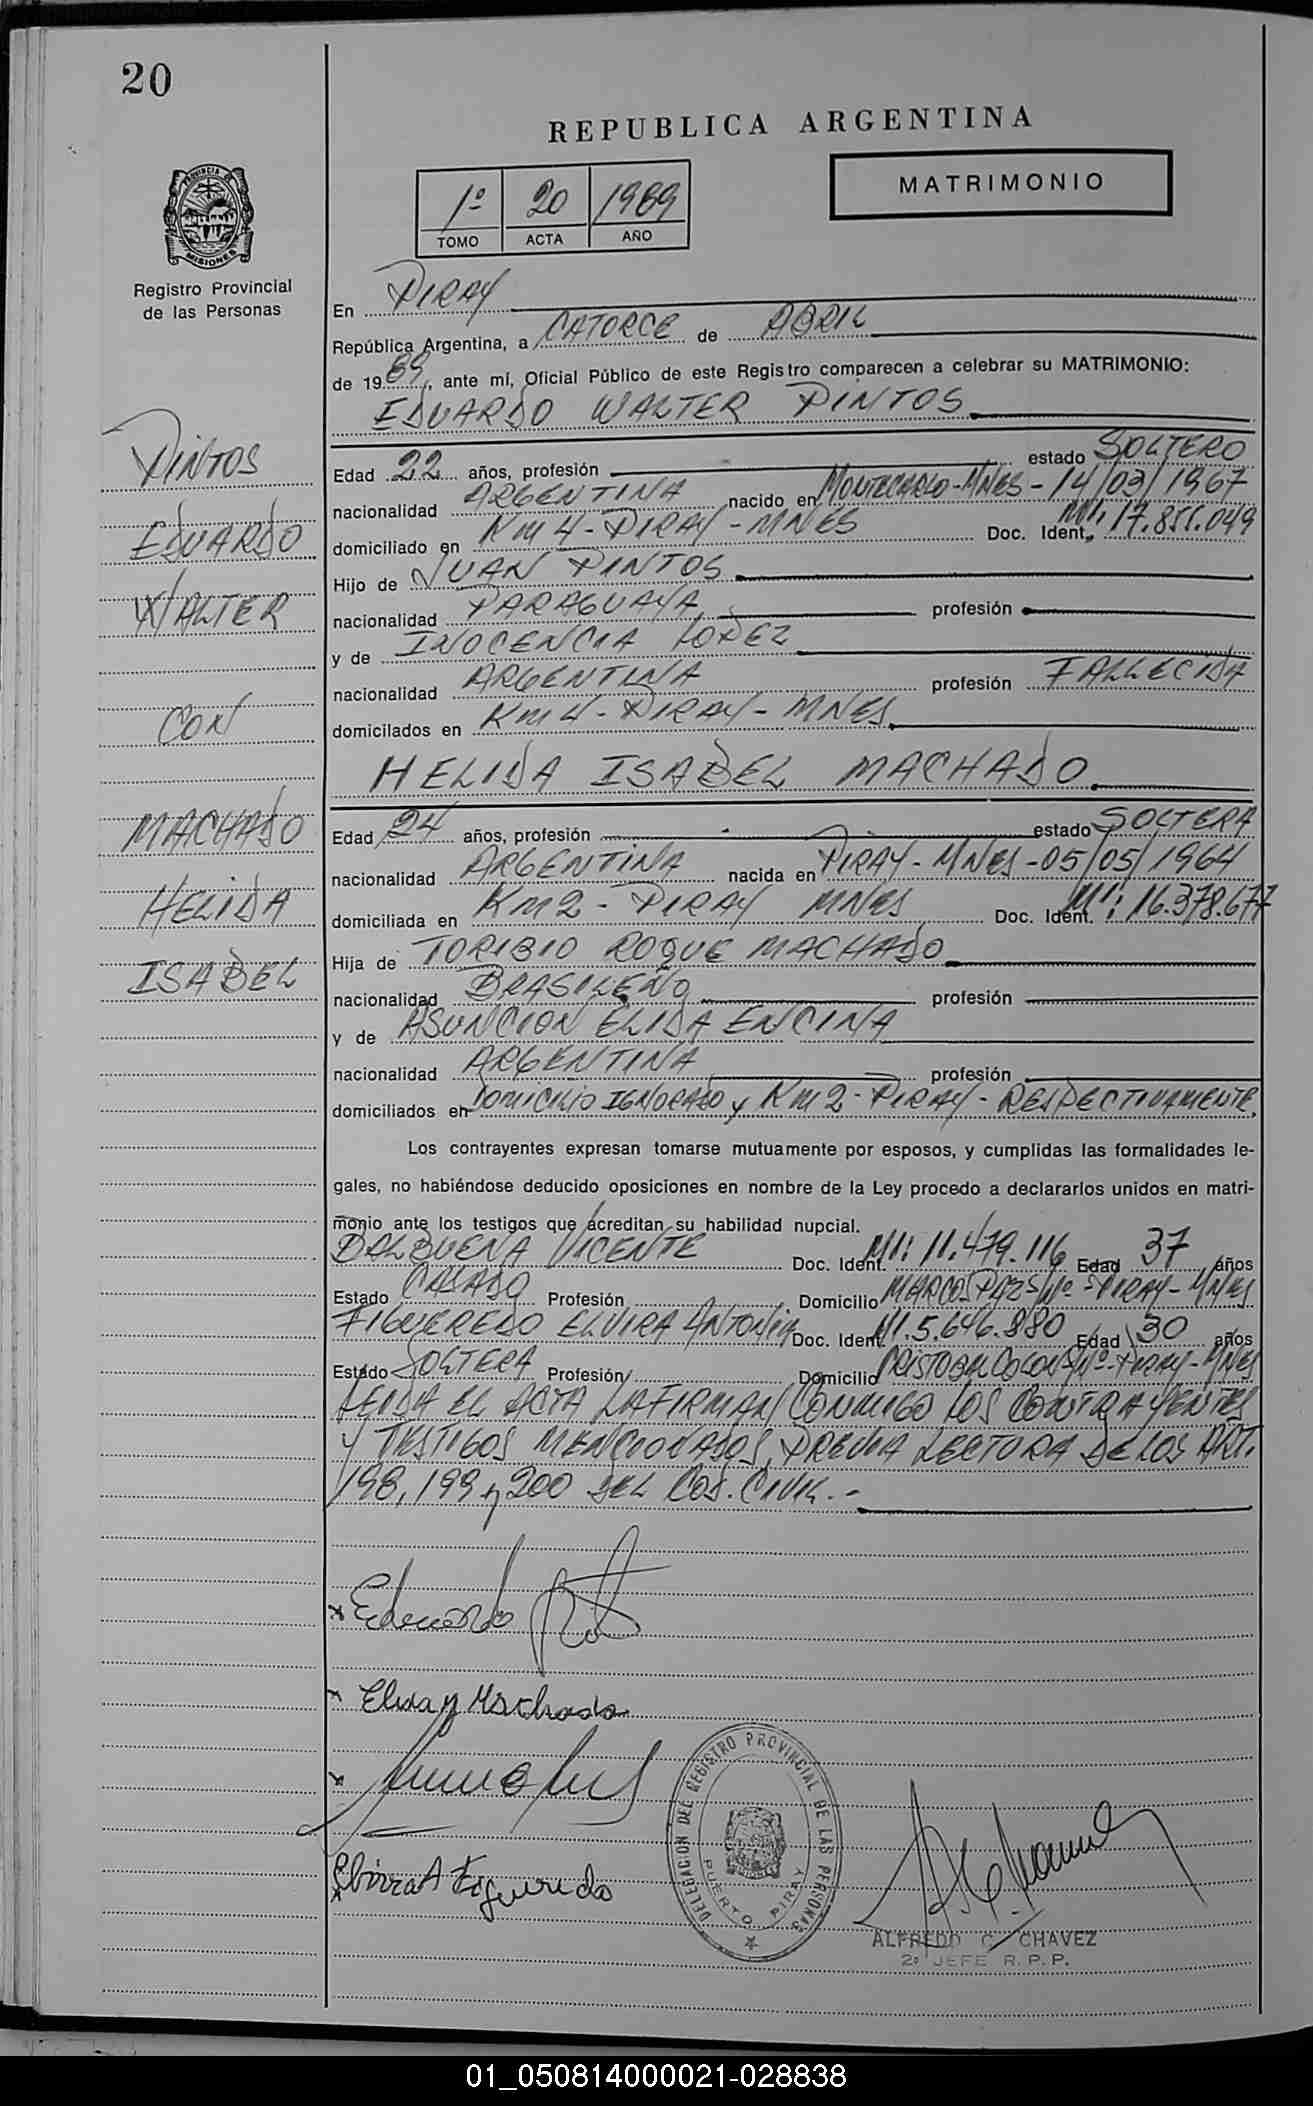 20
REPUBLICA ARGENTINA
MATRIMONIO
1º 20 1989
TOMO ACTA AÑO
PROVINCIA DE
MISIONES
Registro Provincial
de las Personas
En PIRAY
República Argentina, a CATORCE de ABRIL
de 1989, ante mí, Oficial Público de este Registro comparecen a celebrar su MATRIMONIO:
EDUARDO WALTER PINTOS
PINTOS
EDUARDO
WALTER
CON
MACHADO
HELIDA
ISABEL
Edad 22 años, profesión estado SOLTERO
nacionalidad ARGENTINA nacido en MONTECARLO-MNES-14/03/1967
domiciliado en Km 4-PIRAY-MNES Doc. Ident. MI: 17.851.049
Hijo de JUAN PINTOS
nacionalidad PARAGUAYA profesión
y de INOCENCIA LOPEZ
nacionalidad ARGENTINA profesión FALLECIDA
domicilados en Km 4-PIRAY-MNES
HELIDA ISABEL MACHADO
Edad 24 años, profesión estado SOLTERA
nacionalidad ARGENTINA nacida en PIRAY-MNES-05/05/1964
domiciliada en Km 2-PIRAY MNES Doc. Ident. MI: 16.378.677
Hija de TORIBIO ROQUE MACHADO
nacionalidad BRASILEÑO profesión
y de ASUNCION ELIDA ENCINA
nacionalidad ARGENTINA profesión
domiciliados en DOMICILIO IGNORADO y Km 2-PIRAY-RESPECTIVAMENTE.
Los contrayentes expresan tomarse mutuamente por esposos, y cumplidas las formalidades le-
gales, no habiéndose deducido oposiciones en nombre de la Ley procedo a declararlos unidos en matri-
monio ante los testigos que acreditan su habilidad nupcial.
BALBUENA VICENTE Doc. Ident. MI: 11.479.116 Edad 37 años
Estado CASADO Profesión Domicilio MARCOS PAZ S/Nº-PIRAY-MNES
FIGUEREDO ELVIRA ANTONIA Doc. Ident. MI.5.646.880 Edad 30 años
Estado SOLTERA Profesión Domicilio CRISTOBAL COLON S/Nº-PIRAY-MNES
LEIDA EL ACTA LA FIRMAN CONMIGO LOS CONTRAYENTES
Y TESTIGOS MENCIONADOS, PREVIA LECTURA DE LOS ART.
198, 199 y 200 DEL COD. CIVIL.-
Eduardo
Machado
Elvira A Figueredo
DELEGACION DEL REGISTRO PROVINCIAL DE LAS PERSONAS
PUERTO PIRAY
ALFREDO C. CHAVEZ
2º JEFE R.P.P.
01_050814000021-028838